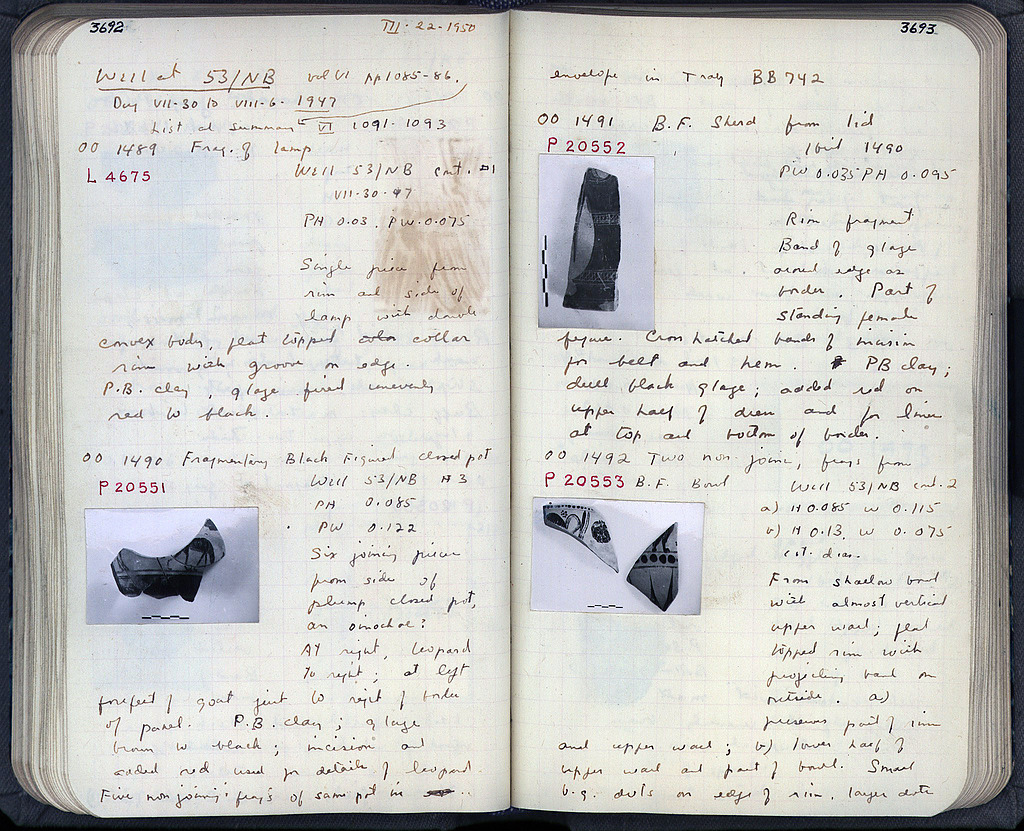 3692
III · 22 - 1950
Well at 53/NB vol VI pp 1085-86.
Day VII-30 to VIII-6- 1947
List of summary VI 1091-1093
OO 1489 Frag. of lamp
L 4675
Well 53/NB cont. 1
VII-30-47
PH 0.03, PW. 0.075
Single piece from
rim and side of
lamp with double
convex body, flat topped collar
rim with groove on edge.
P.B. clay, glaze fired unevenly
red to black.
OO 1490 Fragmentary Black Figured closed pot
P 20551
Well 53/NB #3
PH 0.085
PW 0.122
Six joining pieces
from side of
plump closed pot,
an oinochoe?
At right, leopard
to right; at left
forefeet of goat just to right of border
of panel. P.B. clay; glaze
brown to black; incision and
added red used for details of leopard.
Five non joining frags of same pot in
3693
envelope in Tray BB 742
OO 1491 B.F. Sherd from lid
P 20552
Ibid 1490
PW 0.035 PH 0.095
Rim fragment
Band of glaze
around edge as
border. Part of
standing female
figure. Cross hatched bands of incision
for belt and hem. PB clay;
dull black glaze; added red on
upper half of dress and for lines
at top and bottom of border.
OO 1492 Two non-joining frags from
P 20553 B.F. Bowl
Well 53/NB cont. 2
a) H 0.085 W 0.115
b) H 0.13, W 0.075
est. diam.
From shallow bowl
with almost vertical
upper wall; flat
topped rim with
projecting band on
outside. a)
preserves part of rim
and upper wall; b) lower half of
upper wall and part of bowl. Small
b.g. dots on edge of rim, larger dots